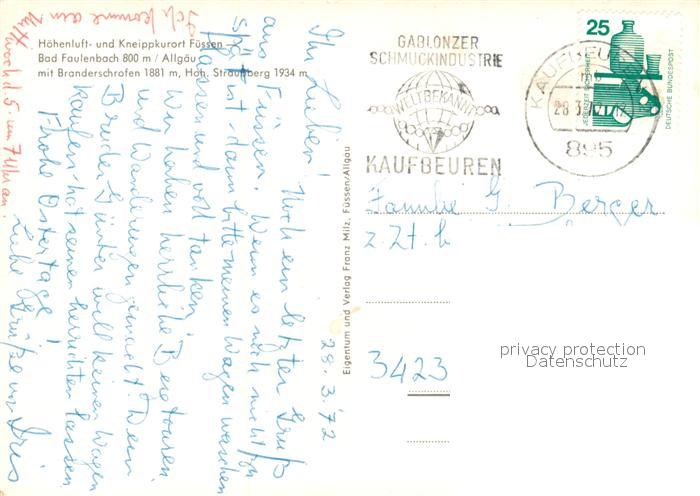 Höhenluft- und Kneippkurort Füssen
Bad Faulenbach 800 m / Allgäu
mit Branderschrofen 1881 m, Hoh. Straußberg 1934 m
Ich komme am
Mittwoch d 5. um 7 Uhr an!
Ihr Lieben!
Noch ein letzter Gruß
aus Füssen. Wenn es noch nicht zu
spät ist, dann bitte meinen Wagen waschen
lassen und voll tanken!
Wir haben herrliche Bergtouren
und Wanderungen gemacht! Dein
Bruder Günter will keinen Wagen
kaufen, hat seinen herrichten lassen
Frohe Ostertage!
Liebe Grüße von Iris
28.3.72
Eigentum und Verlag Franz Milz, Füssen/Allgäu
GABLONZER
SCHMUCKINDUSTRIE
WELTBEKANNT
KAUFBEUREN
KAUFBEUREN
28.3.72
895
25
JEDERZEIT SICHERHEIT
DEUTSCHE BUNDESPOST
Familie G. Berger
z. Zt. b
3423
privacy protection
Datenschutz